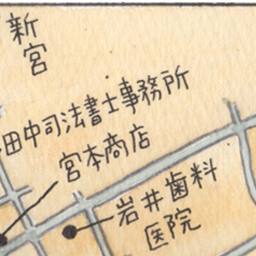 新宮
田中司法書士事務所
宮本商店
岩井歯科
医院